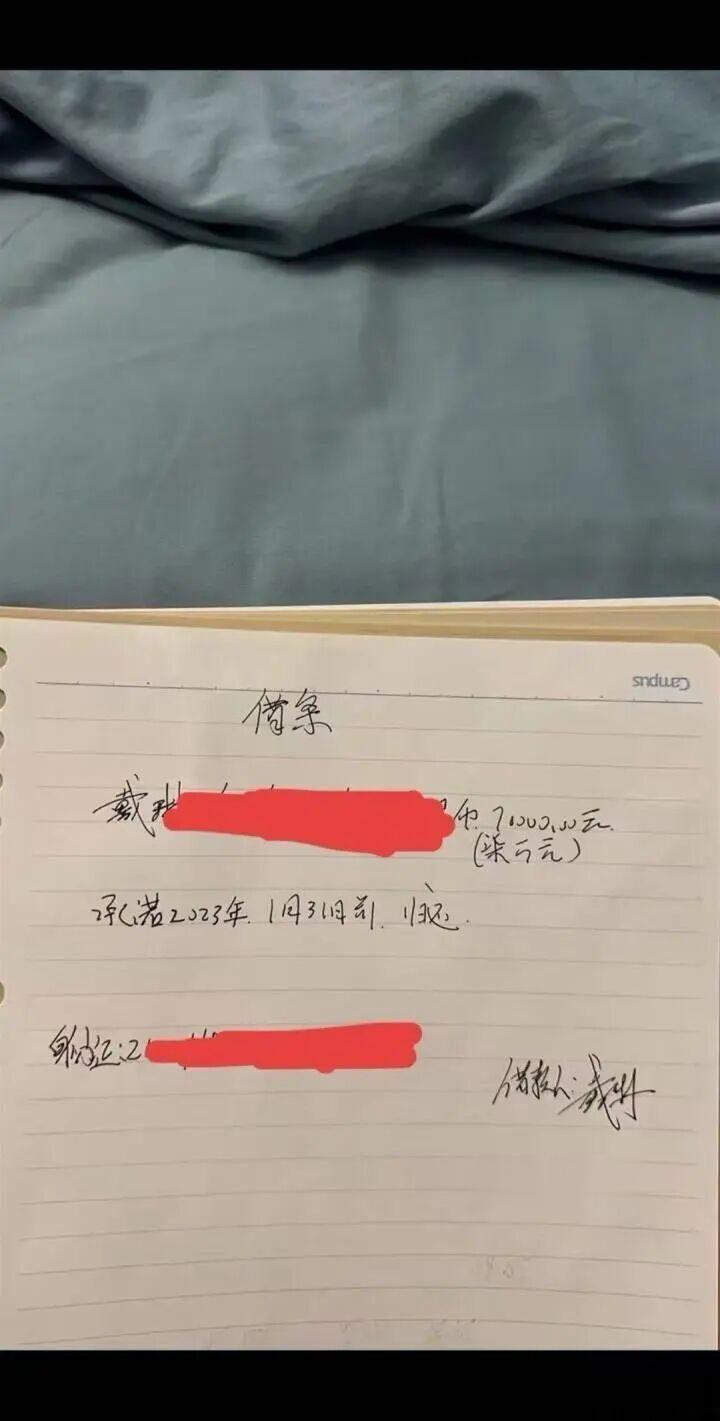 Campus
借条
戴琳 币 70000.00元.
(柒万元)
承诺2023年.1月31日前.归还.
身份证:2
借款人:戴琳